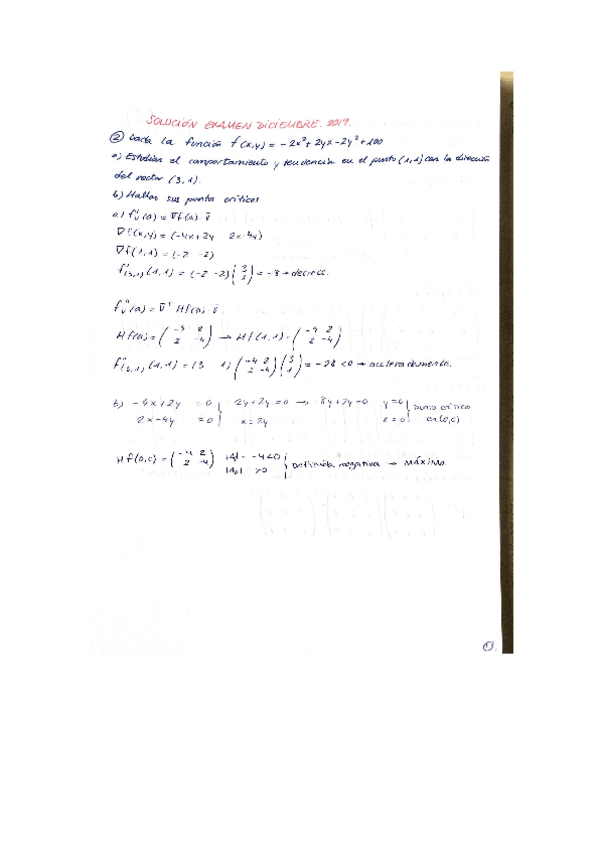 SOLUCIÓN EXAMEN DICIEMBRE. 2019.
② Dada la función f(x,y) = -2x²+2yx-2y²+100
a) Estudiar el comportamiento y tendencia en el punto (1,1) con la dirección
del vector (3,1).
b) Hallar sus puntos críticos
a) f'v(a) = ∇f(a)·v̄
∇f(x,y) = (-4x+2y 2x-4y)
∇f(1,1) = (-2 -2)
f'(3,1)(1,1) = (-2 -2)(3 1) = -8 → decrece.
f''v(a) = v̄ᵀ Hf(a)·v̄.
Hf(a) = (-4 2 2 -4) → Hf(1,1) = (-4 2 2 -4)
f''(3,1)(1,1) = (3 1)(-4 2 2 -4)(3 1) = -28 <0 → aceleradamente.
b) -4x+2y = 0 y+2y=0 → 8y+2y=0 y=0 punto crítico
2x-4y = 0 x=2y x=0 en (0,0)
Hf(0,0) = (-4 2 2 -4) |A1| = -4<0 definida negativa → Máximo
|A2| >0
①.